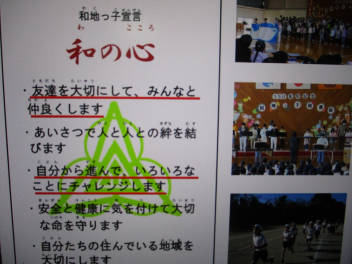 和地っ子宣言
和の心
・友達を大切にして、みんなと
仲良くします
・あいさつで人と人との絆を結
びます
・自分から進んで、いろいろな
ことにチャレンジします
・安全と健康に気を付けて大切
な命を守ります
・自分たちの住んでいる地域を
大切にします